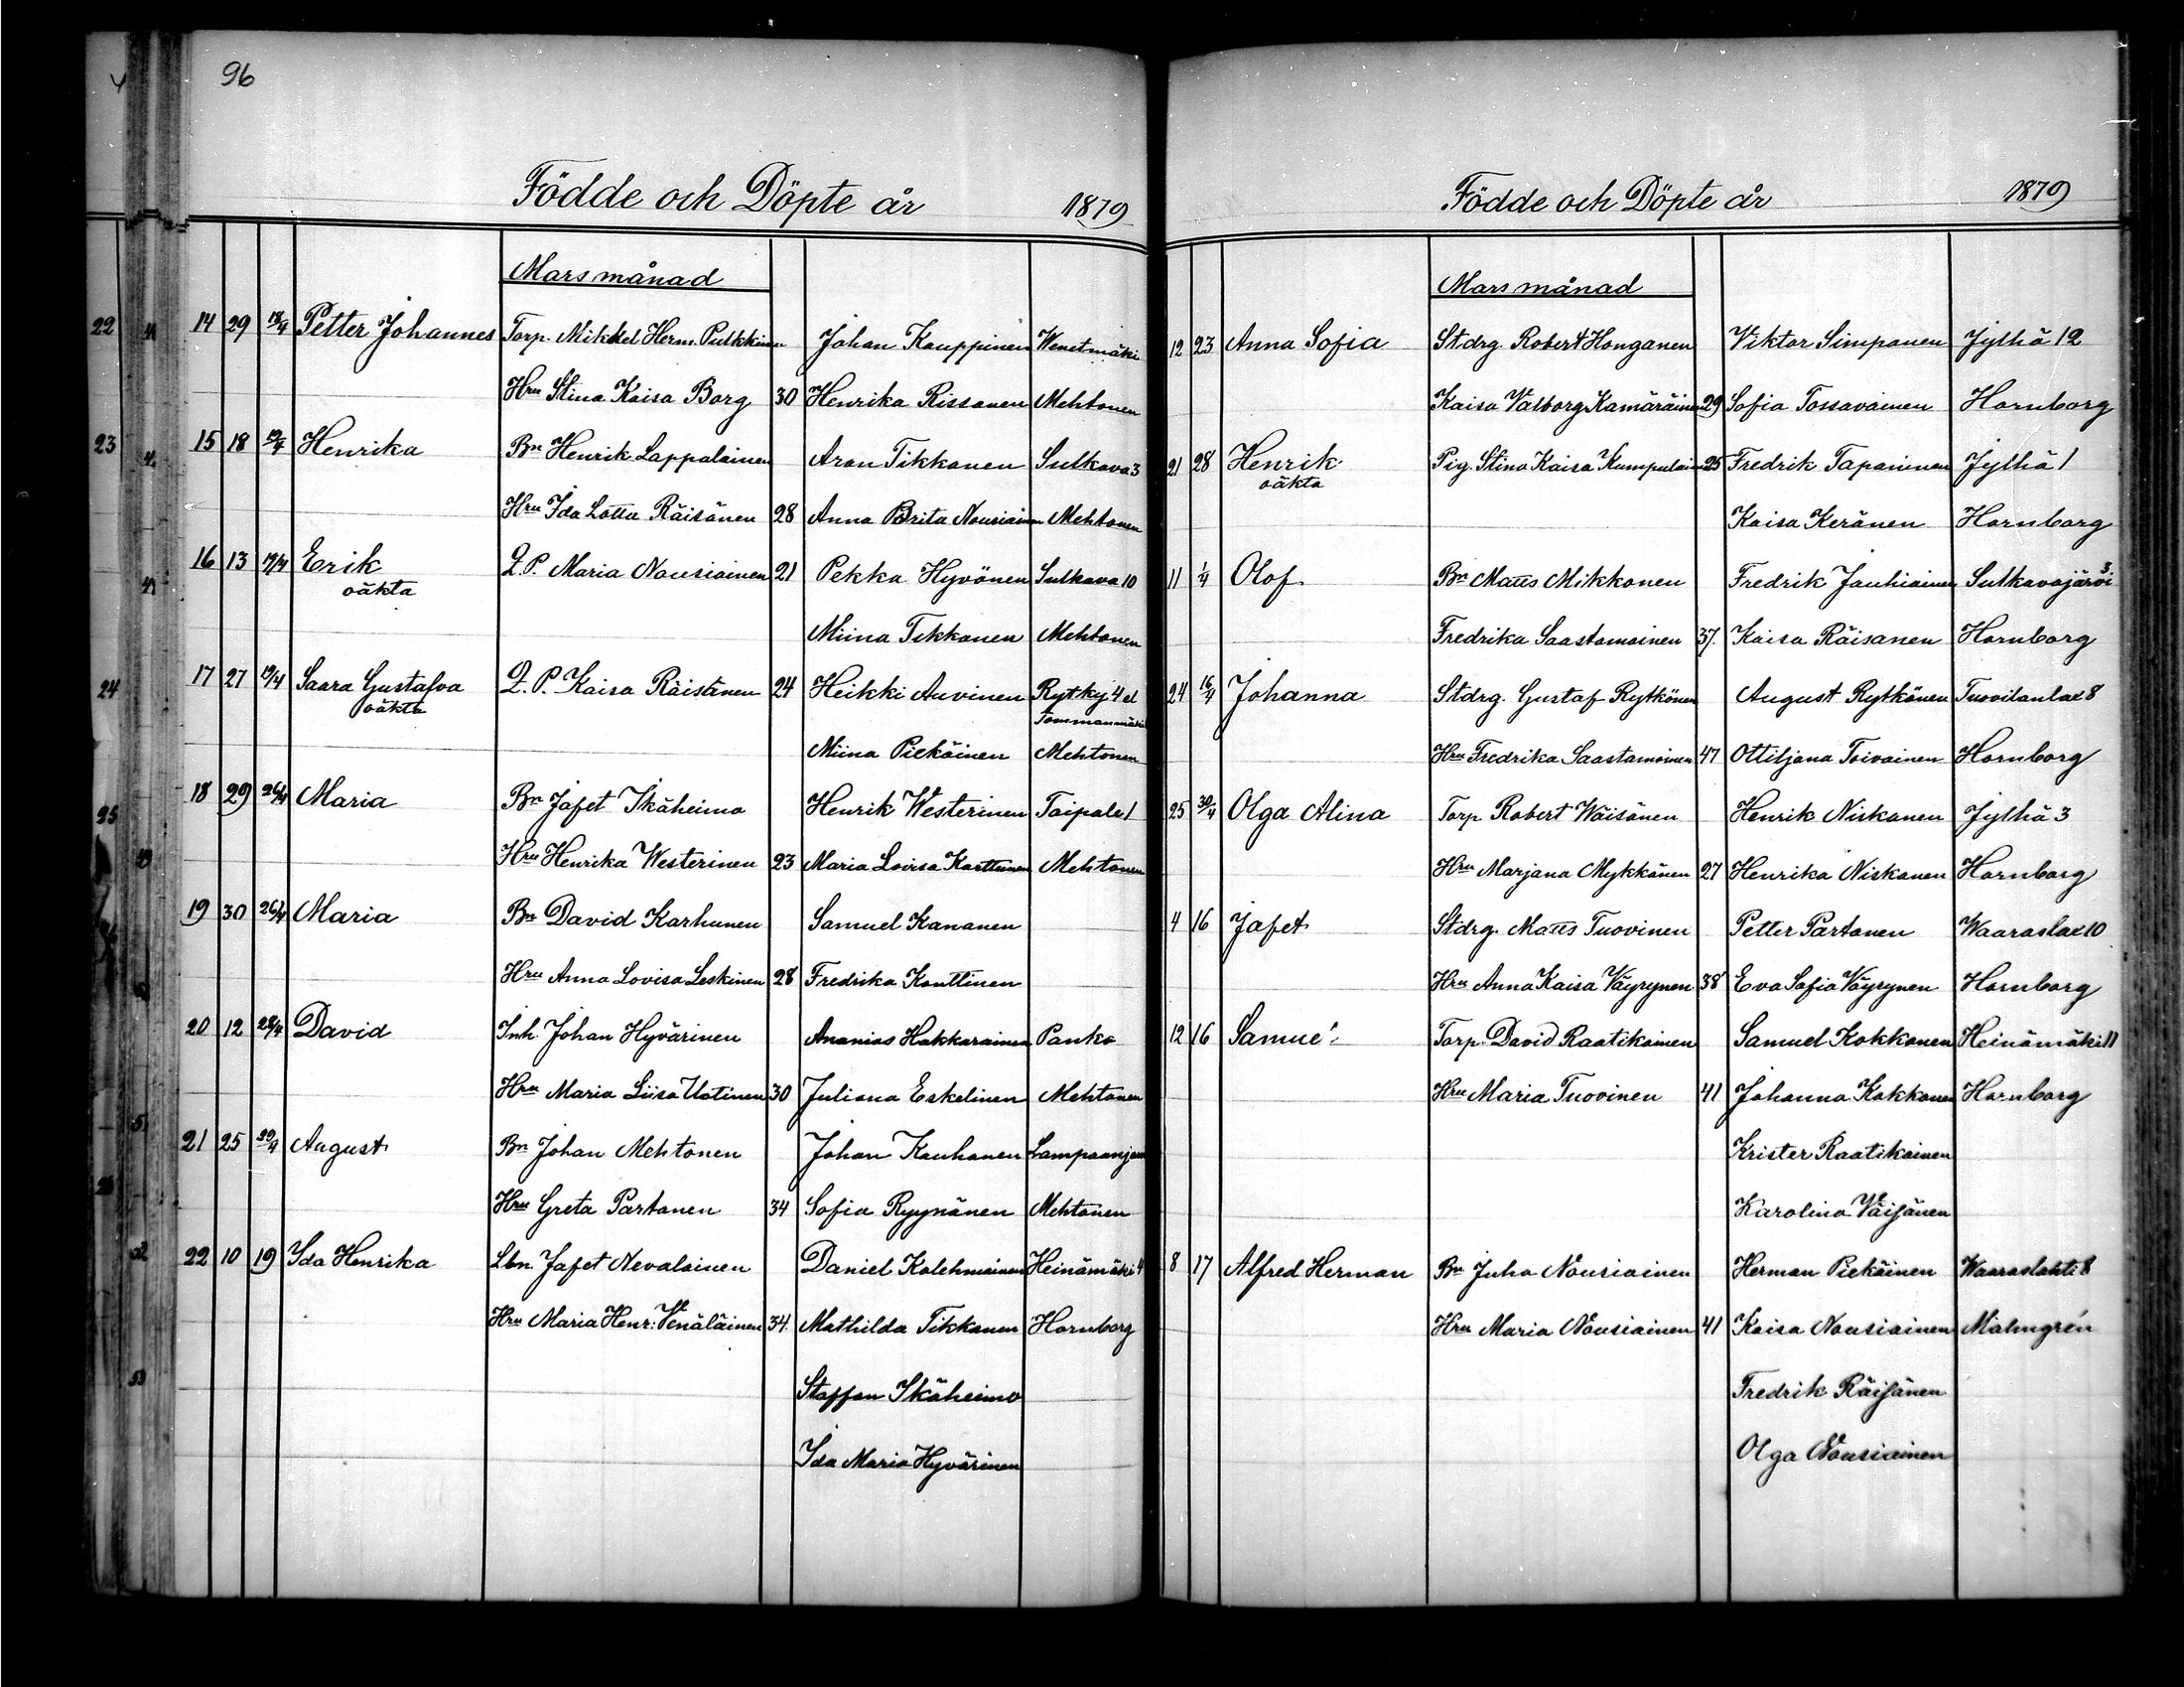 96
Födde och Döpte år 1879
Mars månad
22 14 29 18/4 Petter Johannes Torp. Mikkel Herm. Pulkkinen Johan Kauppinen Wenetmäki
Hru Stina Kaisa Borg 30 Henrika Rissanen Mehtonen
23 15 18 Henrika Bn Henrik Lappalainen Aron Tikkanen Sulkava 3
Hru Ida Lotta Räisänen 28 Anna Brita Nousiainen Mehtonen
16 13 19/4 Erik Q.P. Maria Nousiainen 21 Pekka Hyvönen Sulkava 10
oäkta
Miina Tikkanen Mehtonen
24 17 27 19/4 Saara Gustafva Q.P. Kaisa Räisänen 24 Heikki Auvinen Rytky 4 el
oäkta Tommanmäki
Miina Piekäinen Mehtonen
18 29 26/4 Maria Bn Jafet Ikäheimo Henrik Westerinen Taipale 1
Hru Henrika Westerinen 23 Maria Lovisa Karttunen Mehtonen
19 30 26/4 Maria Bn David Karhunen Samuel Kananen
Hru Anna Lovisa Leskinen 28 Fredrika Konttinen
20 12 28/4 David Inh. Johan Hyvärinen Ananias Hakkarainen Panko
Hru Maria Liisa Uotinen 30 Juliana Eskelinen Mehtonen
21 25 August Bn Johan Mehtonen Johan Kauhanen
Hru Greta Partanen 34 Sofia Ryynänen Mehtonen
22 10 19 Ida Henrika Lbn. Jafet Nevalainen Daniel Kolehmainen Heinämäki 4
Hru Maria Henr: Venäläinen 34. Mathilda Tikkanen Hornborg
Staffan Ikäheimo
Ida Maria Hyvärinen
Födde och Döpte år 1879
Mars månad
12 23 Anna Sofia Stdrg. Robert Honganen Viktor Simpanen Jylhä 12
Kaisa Valborg Kamäräinen 29 Sofia Tossavainen Hornborg
21 28 Henrik Pig. Stina Kaisa Kumpulain 25 Fredrik Tapaninen Jylhä 1
oäkta
Kaisa Keränen Hornborg
11 1/4 Olof Bn Matts Mikkonen Fredrik Jauhiainen Sulkavajärvi 3
Fredrika Saastamoinen 37. Kaisa Räisanen Hornborg
24 16/4 Johanna Stdrg. Gustaf Rytkönen August Rytkönen Tuovilanlax 8
Hru Fredrika Saastamoinen 47 Ottiljana Toivainen Hornborg
25 30/4 Olga Alina Torp Robert Wäisänen Henrik Niskanen Jylhä 3
Hru Marjana Mykkänen 27 Henrika Niskanen Hornborg
4 16 Jafet Stdrg. Matts Tuovinen Petter Partanen Waaraslax 10
Hru Anna Kaisa Väyrynen 38 Eva Sofia Väyrynen Hornborg
12 16 Samuel Torp. David Raatikainen Samuel Kokkonen Heinämäki 11
Hru Maria Tuovinen 41 Johanna Kokkonen Hornborg
Krister Raatikainen
Karolina Väisänen
8 17 Alfred Herman Bn Juho Nousiainen Herman Piekäinen Waaraslahti 8
Hru Maria Nousiainen 41 Kaisa Nousiainen Malmgrén
Fredrik Räisänen
Olga Nousiainen